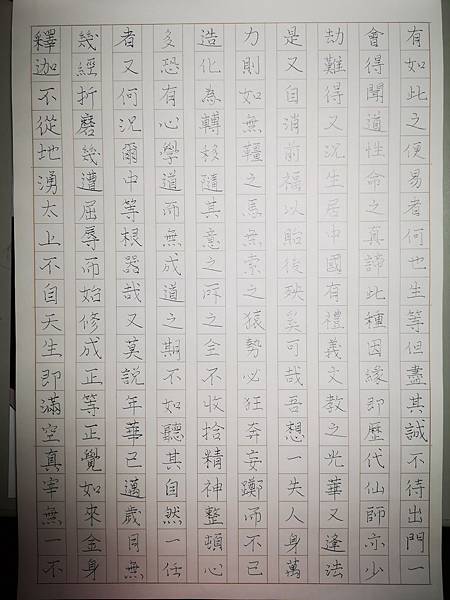 有如此之便易者何也生等但盡其誠不待出門一
會得聞道性命之真諦此種因緣即歷代仙師亦少
劫難得又況生居中國有禮義文教之光華又逢法
是又自消前福以貽後殃奚可哉吾想一失人身萬
力則如無韁之馬無索之猿勢必狂奔妄躑而不已
造化為轉移隨其意之所之全不收拾精神整頓心
多恐有心學道而無成道之期不如聽其自然一任
者又何況爾中等根器哉又莫說年華已邁歲月無
幾經折磨幾遭屈辱而始修成正等正覺如來金身
釋迦不從地湧太上不自天生即滿空真宰無一不